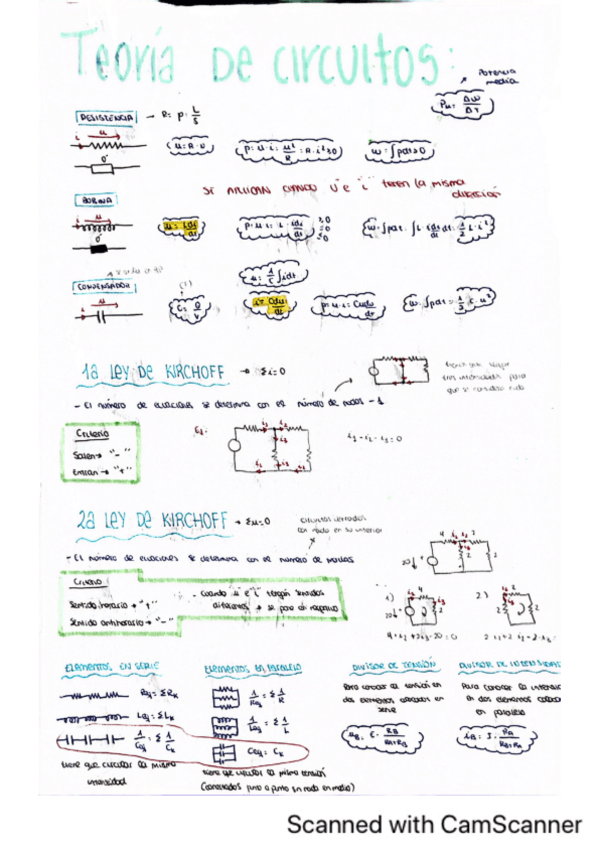 Teoría De circuitos:
Potencia
media
Pm = Δw/Δt
RESISTENCIA → R = ρ · L/S
i u
u = R · i
p = u · i = u²/R = R · i² ≥ 0
w = ∫pdt > 0
SE APLICAN CUANDO "u" e "i" tienen la misma
dirección
BOBINA
i u
u = L di/dt
p = u · i = L · i di/dt
w = ∫pdt = ∫L i di/dt dt = 1/2 L · i²
u = 1/C ∫idt
CONDENSADOR
i u
i = C du/dt
p = u · i = C u du/dt
w = ∫pdt = 1/2 C · u²
1a Ley DE KIRCHOFF → Σi = 0
tres intensidades para
que se considere nudo
- El número de ecuaciones se determina con el número de nudos - 1
Criterio
Salen → "-"
Entran → "+"
Ej:
i₁ - i₂ - i₃ = 0
2a Ley DE KIRCHOFF → Σu = 0
circuitos cerrados
con nada en su interior
- El número de ecuaciones se determina con el número de mallas
Criterio
Sentido horario → "+"
Sentido antihorario → "-"
- Cuando "u" e "i" tengan sentidos
diferentes → se pone el negativo
1) 2)
ELEMENTOS EN SERIE
Req = ΣRk
Leq = ΣLk
1/Ceq = Σ 1/Ck
tiene que circular la misma
intensidad
ELEMENTOS EN PARALELO
1/Req = Σ 1/R
1/Leq = Σ 1/L
Ceq = Ck
tiene que circular la misma tensión
(conectados punto a punto sin nada en medio)
DIVISOR DE TENSIÓN
Para conocer la tensión en
dos elementos colocados en
serie
uB = E · RB/(RA+RB)
DIVISOR DE INTENSIDAD
Para conocer la intensid
en dos elementos coloca
en paralelo
iB = I · RA/(RA+RB)
Scanned with CamScanner